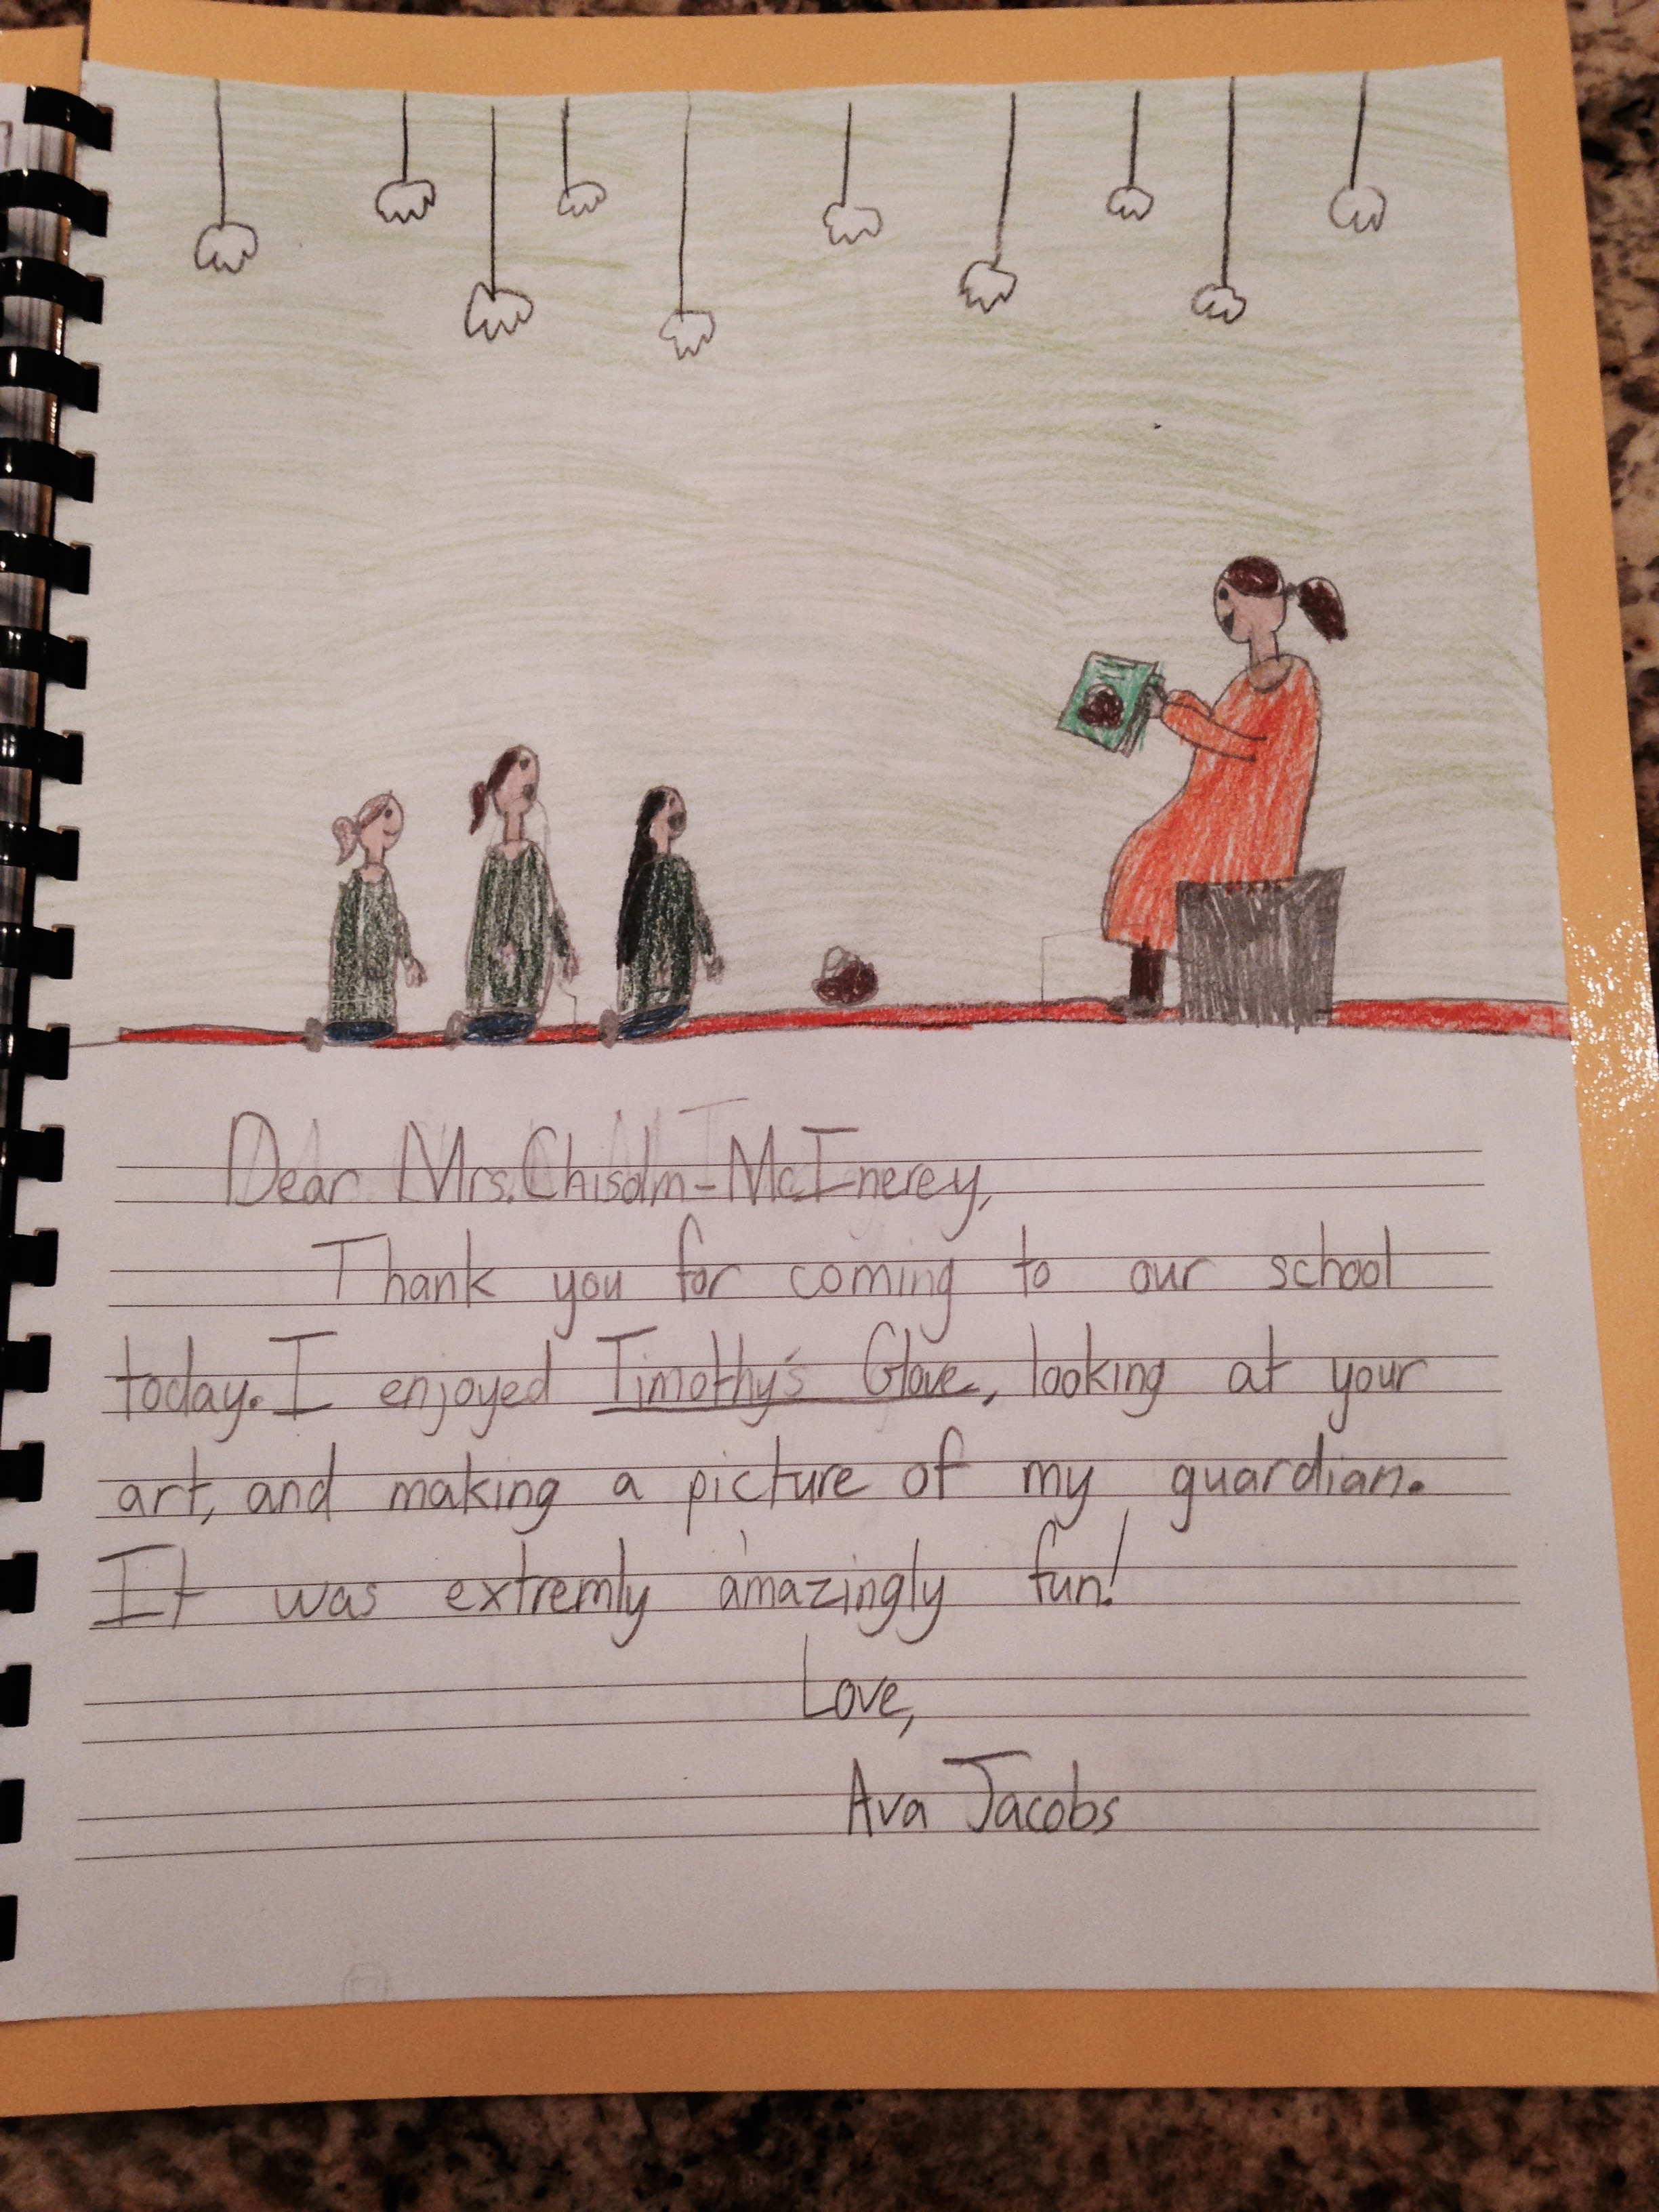 Dear Mrs. Chisolm-McInerey,
Thank you for coming to our school
today. I enjoyed Timothy's Glove, looking at your
art, and making a picture of my guardian.
It was extremly amazingly fun!
Love,
Ava Jacobs